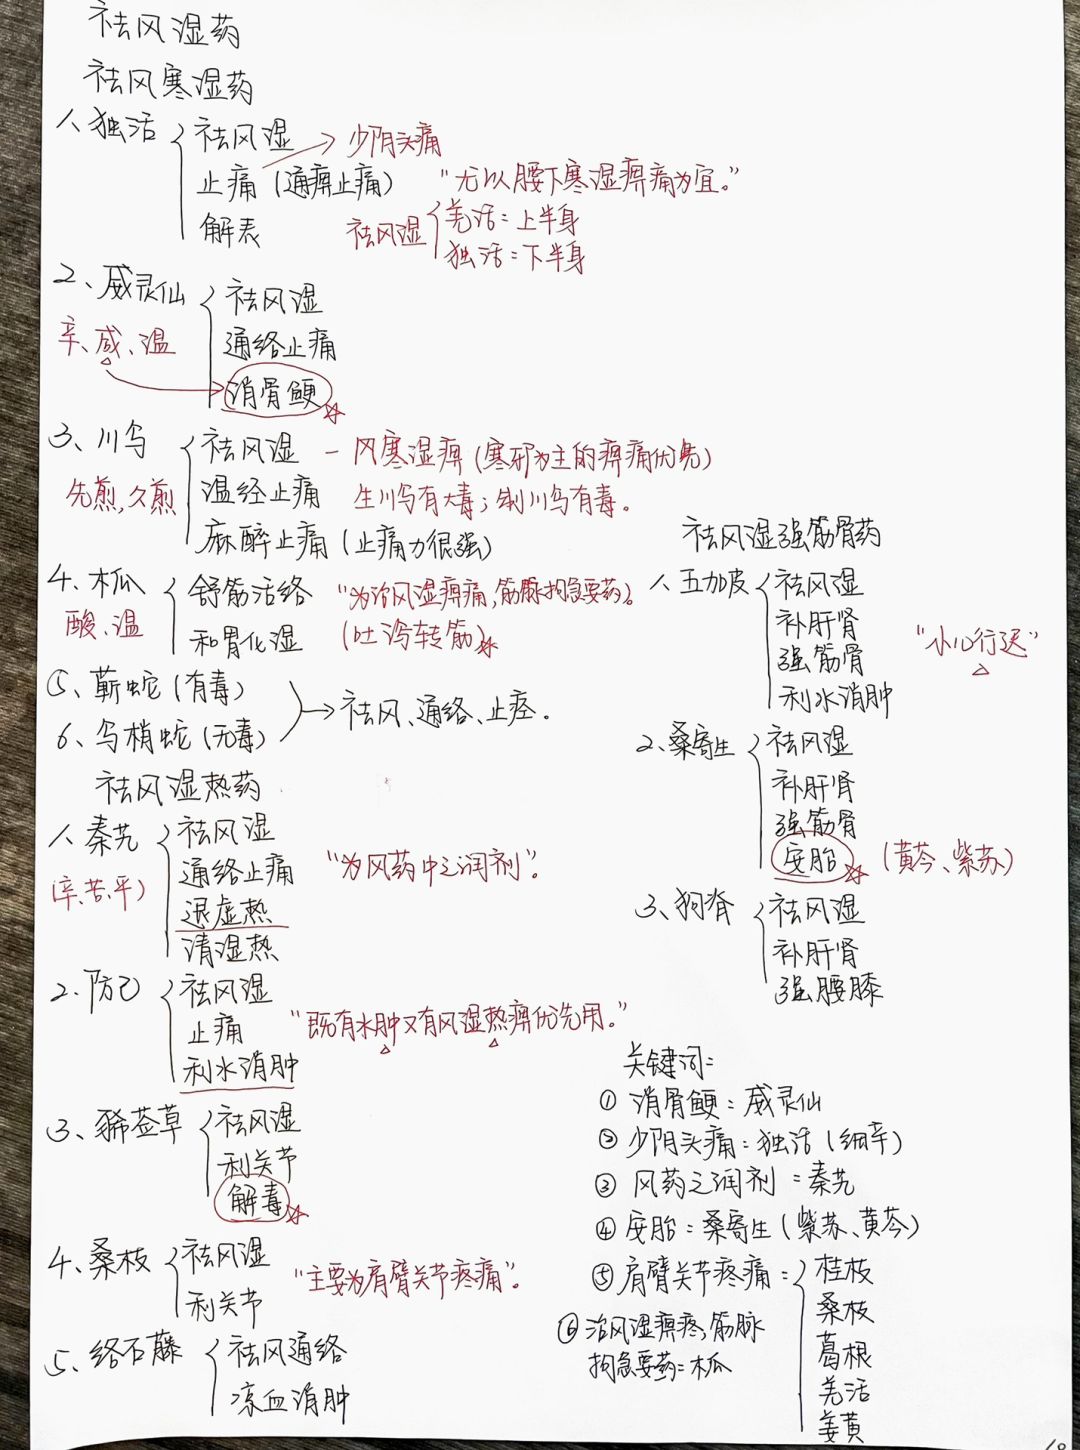 祛风湿药
祛风寒湿药
1、独活
祛风湿
止痛（通痹止痛）
解表
少阴头痛
“尤以腰下寒湿痹痛为宜。”
祛风湿
羌活：上半身
独活：下半身
2、威灵仙
辛、咸、温
祛风湿
通络止痛
消骨鲠
3、川乌
先煎,久煎
祛风湿 － 风寒湿痹（寒邪为主的痹痛优先）
温经止痛 生川乌有大毒；制川乌有毒。
麻醉止痛（止痛力很强）
4、木瓜
酸、温
舒筋活络 “为治风湿痹痛,筋脉拘急要药”。
和胃化湿 （吐泻转筋）
⑤、蕲蛇（有毒）
6、乌梢蛇（无毒）
祛风、通络、止痉。
祛风湿热药
1、秦艽
（辛.苦.平）
祛风湿
通络止痛
退虚热
清湿热
“为风药中之润剂”。
2、防己
祛风湿
止痛
利水消肿
“既有水肿又有风湿热痹优先用。”
3、豨莶草
祛风湿
利关节
解毒
4、桑枝
祛风湿
利关节
“主要为肩臂关节疼痛”。
5、络石藤
祛风通络
凉血消肿
祛风湿强筋骨药
1、五加皮
祛风湿
补肝肾
强筋骨
利水消肿
“小儿行迟”
2、桑寄生
祛风湿
补肝肾
强筋骨
安胎
（黄芩、紫苏）
3、狗脊
祛风湿
补肝肾
强腰膝
关键词：
① 消骨鲠：威灵仙
② 少阴头痛：独活（细辛）
③ 风药之润剂：秦艽
④ 安胎：桑寄生（紫苏、黄芩）
⑤ 肩臂关节疼痛：
桂枝
桑枝
葛根
羌活
姜黄
⑥ 治风湿痹疼,筋脉
拘急要药：木瓜